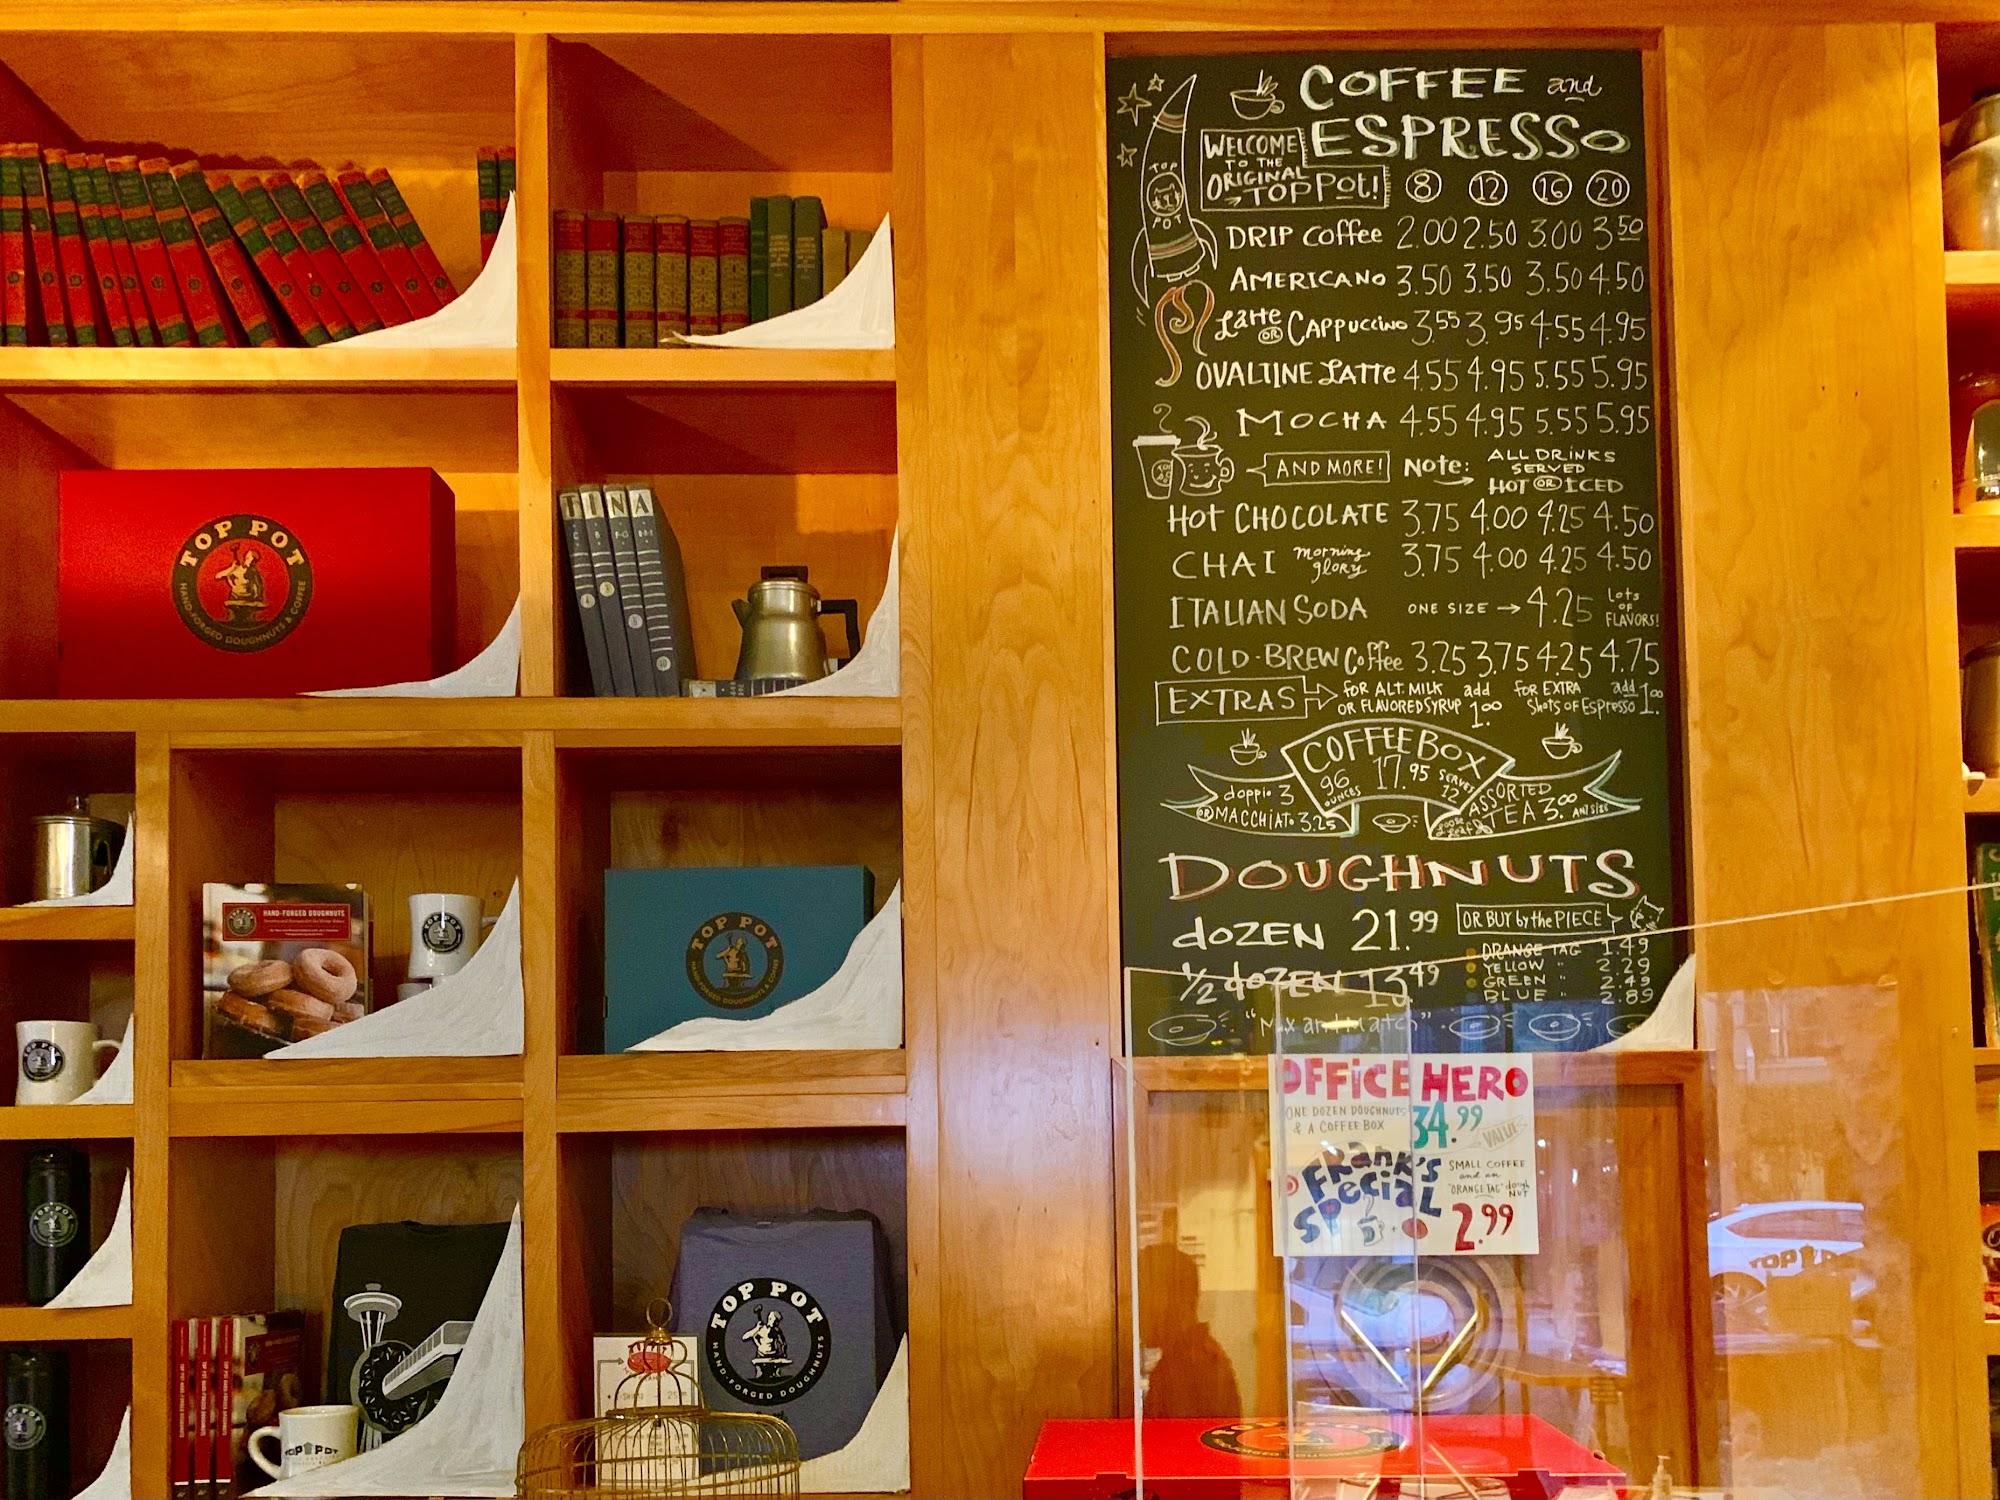 COFFEE and
ESPRESSO
WELCOME
TO THE
ORIGINAL
TOP POT!
TOP
POT
8 12 16 20
DRIP COffee 2.00 2.50 3.00 3.50
AMERICANO 3.50 3.50 3.50 4.50
Latte OR CAPPUCCINO 3.55 3.95 4.55 4.95
OVALTINE LATTE 4.55 4.95 5.55 5.95
MOCHA 4.55 4.95 5.55 5.95
AND MORE! Note: ALL DRINKS
SERVED
HOT OR ICED
HOT CHOCOLATE 3.75 4.00 4.25 4.50
CHAI morning glory 3.75 4.00 4.25 4.50
ITALIAN SODA ONE SIZE → 4.25 lots OF FLAVORS!
COLD-BREW Coffee 3.25 3.75 4.25 4.75
EXTRAS FOR ALT. MILK OR FLAVORED SYRUP add 1.00 FOR EXTRA SHOTS OF ESPRESSO add 1.00
COFFEE BOX
96 OUNCES 17.95 SERVES 12
doppio 3
OR MACCHIATO 3.25
ASSORTED
TEA 3.00 ANY SIZE
loose leaf
DOUGHNUTS
dOZEN 21.99
OR BUY by the PIECE
ORANGE TAG 1.49
YELLOW " 2.29
GREEN " 2.49
BLUE " 2.89
1/2 dOZEN 13.49
"Mix and Match"
OFFICE HERO
ONE DOZEN DOUGHNUTS
& A COFFEE BOX
34.99
VALUE
FRANK'S
SPECIAL
SMALL COFFEE
and an
"ORANGE TAG" dough
NUT
2.99
TOP POT
HAND-FORGED DOUGHNUTS & COFFEE
TINA
TOP POT
HAND-FORGED DOUGHNUTS
TOP POT
TOP POT
HAND-FORGED DOUGHNUTS & COFFEE
TOP POT
TOP POT
TOP POT
HAND-FORGED DOUGHNUTS
TOP POT